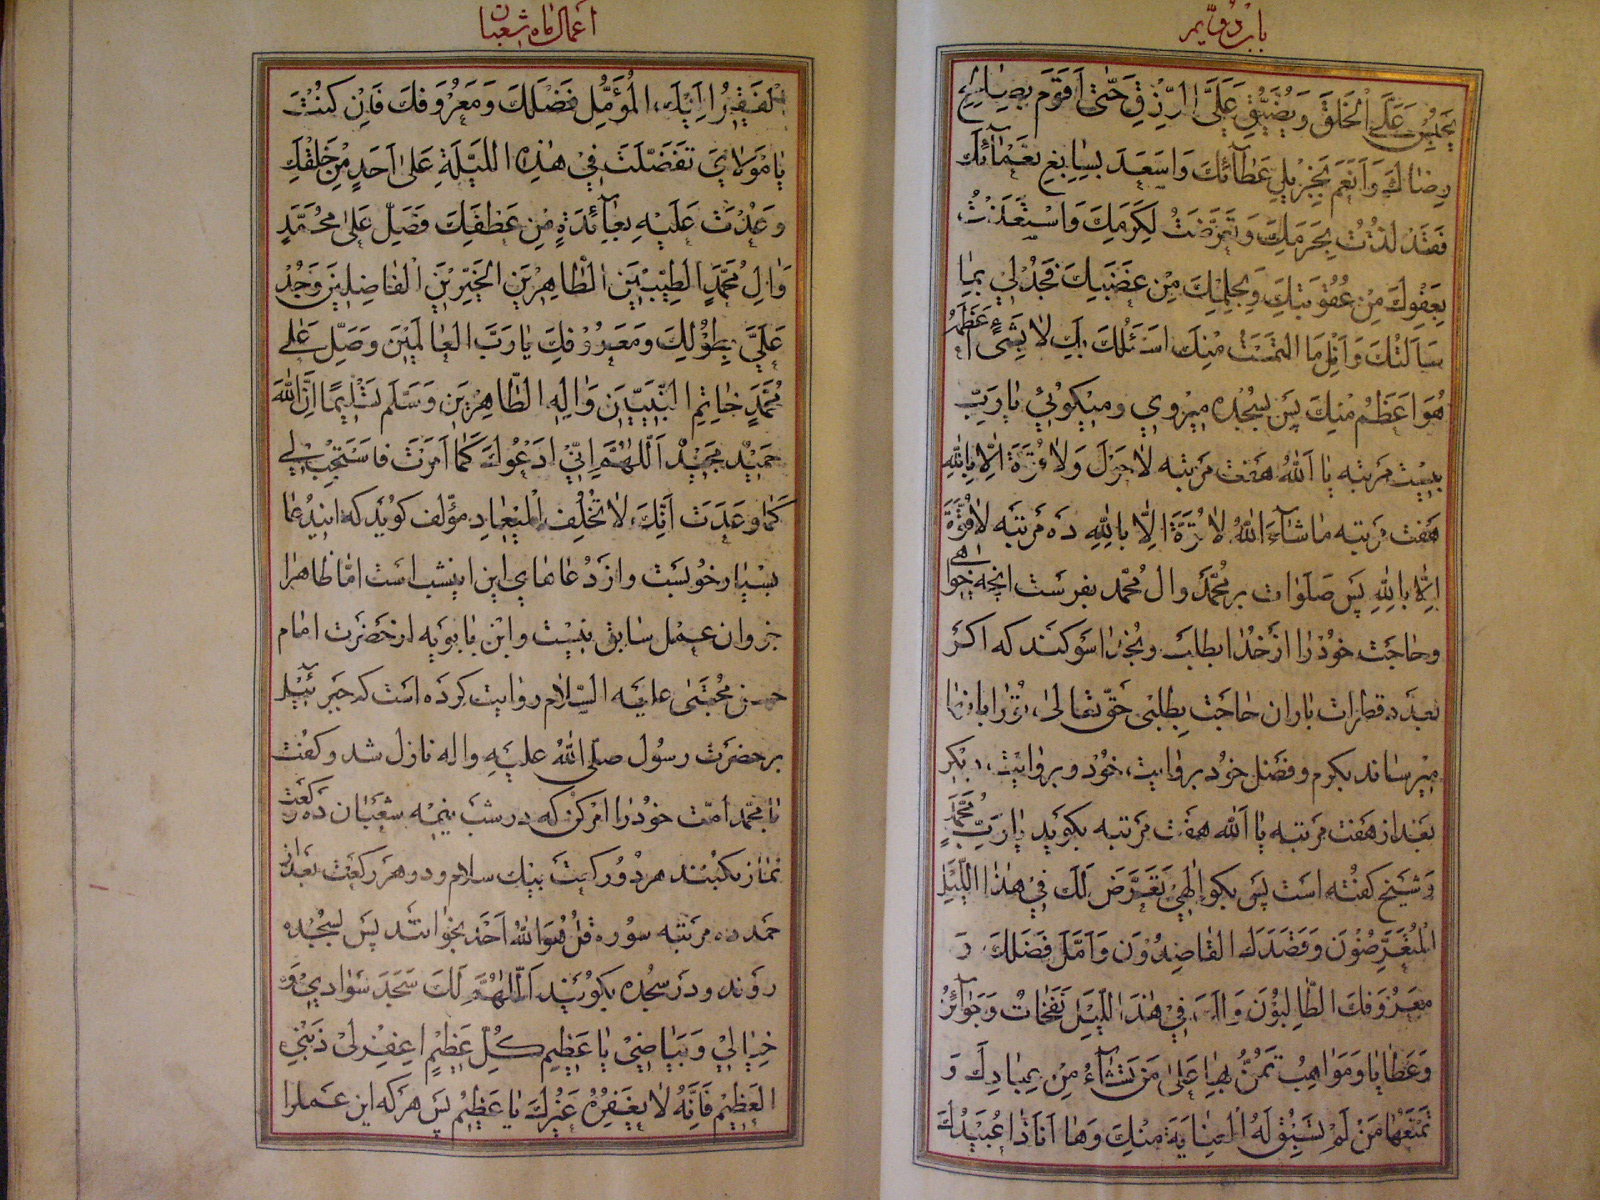 باب دویم
یحبس علی الخلق و یضیق علی الرزق حتی اقوم بصالح
رضاك و انعم بجزیل عطائك و اسعد بسابغ نعمائك
فقد لذت بحرمك و تعرضت لكرمك و استعذت
بعفوك من عقوبتك و بحلمك من غضبك فجد لي بما
سالتك و انل ما التمست منك اسئلك بك لا بشيء اعظم
هو اعظم منك پس بسجده میروي و میكوئي یا رب
بیست مرتبه یا الله هفت مرتبه لا حول ولا قوة الا بالله
هفت مرتبه ما شاء الله لا قوة الا بالله ده مرتبه لا قوة
الا بالله پس صلوات بر محمد و ال محمد بفرست انچه خواهی
و حاجت خود را از خدا بطلب و بخدا سوكند كه اكر
بعدد قطرات باران حاجت بطلبی حق تعالی ترا بانها
میرساند بكرم و فضل خود بروایت دیكر
بعد از هفت مرتبه یا الله هفت مرتبه بكوید یا رب محمد
و شیخ كفته است پس بكو الهي تعرض لك في هذا اللیل
المتعرضون و قصدك القاصدون و امل فضلك و
معروفك الطالبون و لك في هذا اللیل نفحات و جوائز
و عطایا و مواهب تمن بها علی من تشاء من عبادك و
تمنعها من لم تسبق له العنایة منك وها انا ذا عبیدك
اعمال ماه شعبان
الفقیر الیك المؤمل فضلك و معروفك فان كنت
یا مولاي تفضلت في هذه اللیلة علی احد من خلقك
و عدت علیه بعائدة من عطفك فصل علی محمد
و ال محمد الطیبین الطاهرین الخیرین الفاضلین و جد
علي بطولك و معروفك یا رب العالمین و صل علی
محمد خاتم النبیین و اله الطاهرین و سلم تسلیما ان الله
حمید مجید اللهم اني ادعوك كما امرت فاستجب لي
كما وعدت انك لا تخلف المیعاد مؤلف كوید كه این دعا
بسیار خوبست و از دعاهاي این شب است اما ظاهرا
جزو ان عمل سابق نیست و ابن بابویه از حضرت امام
حسن مجتبی علیه السلام روایت كرده است كه جبرئیل
بر حضرت رسول صلی الله علیه و اله نازل شد و كفت
یا محمد امت خود را امر كن كه در شب نیمه شعبان ده ركعت
نماز بكنند هر دو ركعت بیك سلام و در هر ركعت بعد از
حمد ده مرتبه سوره قل هو الله احد بخوانند پس بسجده
روند و در سجده بكویند اللهم لك سجد سوادي و
خیالي و بیاضي یا عظیم كل عظیم اغفر لی ذنبي
العظیم فانه لا یغفره غیرك یا عظیم پس هركه این عملرا